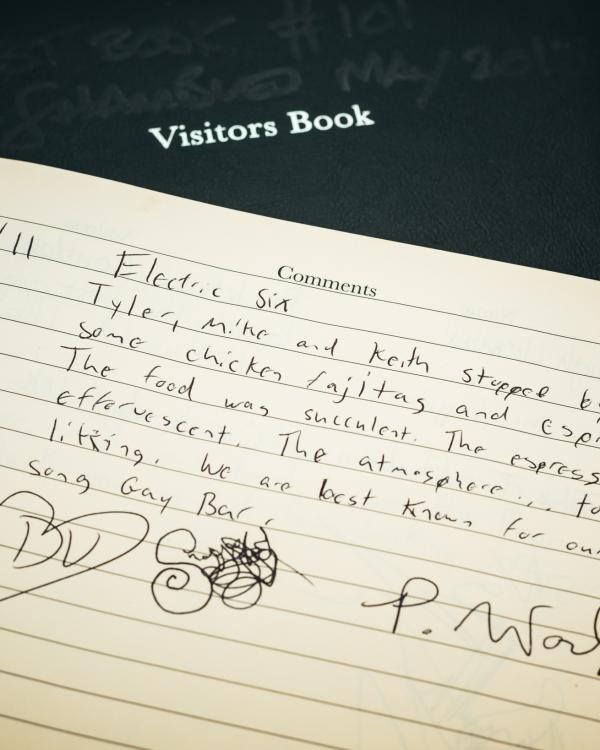 BOOK #101
MAY 201
Visitors Book
Comments
/11 Electric Six
Tyler, Mike and Keith stopped b
some chicken fajitas and espr
The food was succulent. The espress
effervescent. The atmosphere... to
liking. We are best known for our
song Gay Bar.
BV
P. Wood